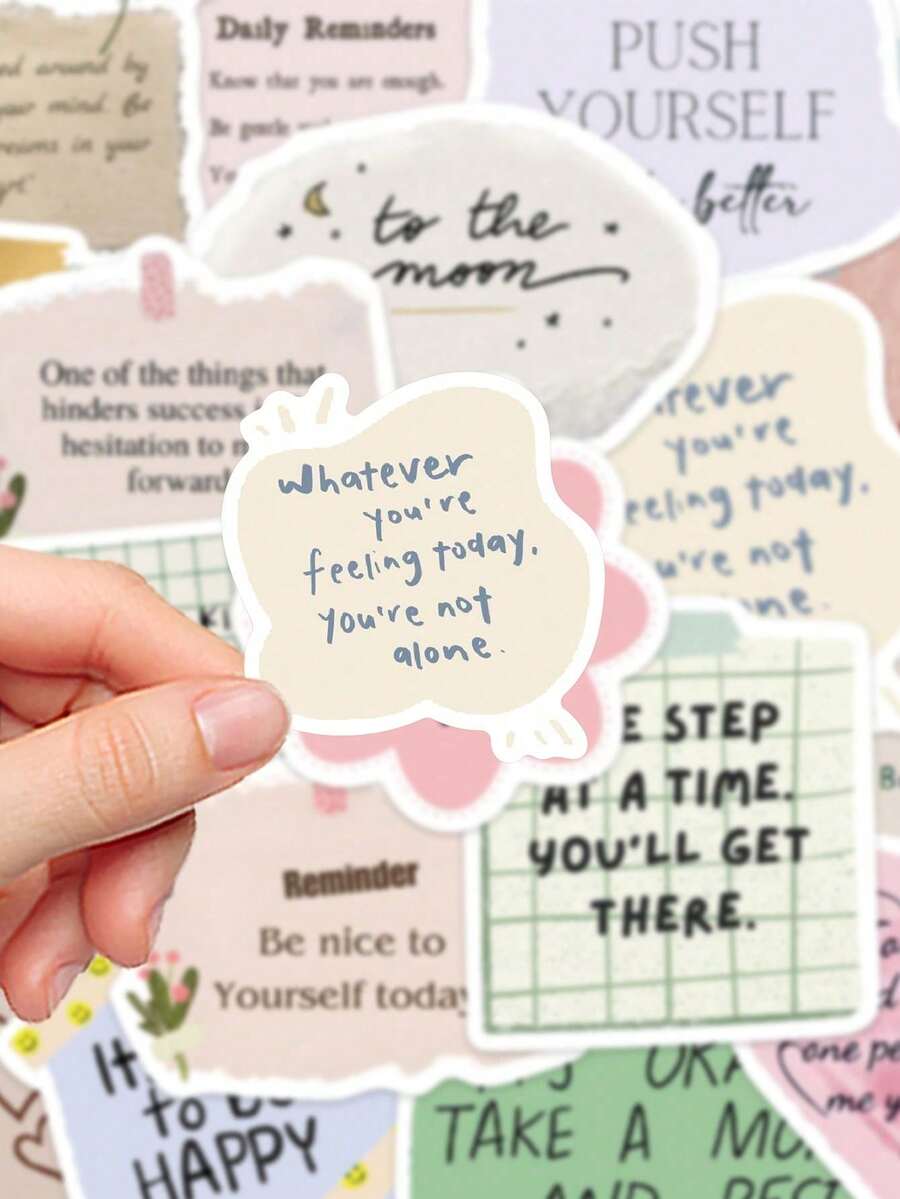 around by
your mind. Be
in your
Daily Reminders
Know that you are enough.
Be gentle
PUSH
YOURSELF
better
to the
moon
One of the things that
hinders success
hesitation to
forward
Whatever
you're
feeling today,
you're not
alone.
you're
feeling today,
not
STEP
AT A TIME.
YOU'LL GET
THERE.
Reminder
Be nice to
Yourself today
to be
HAPPY
TAKE A
AND
one
me